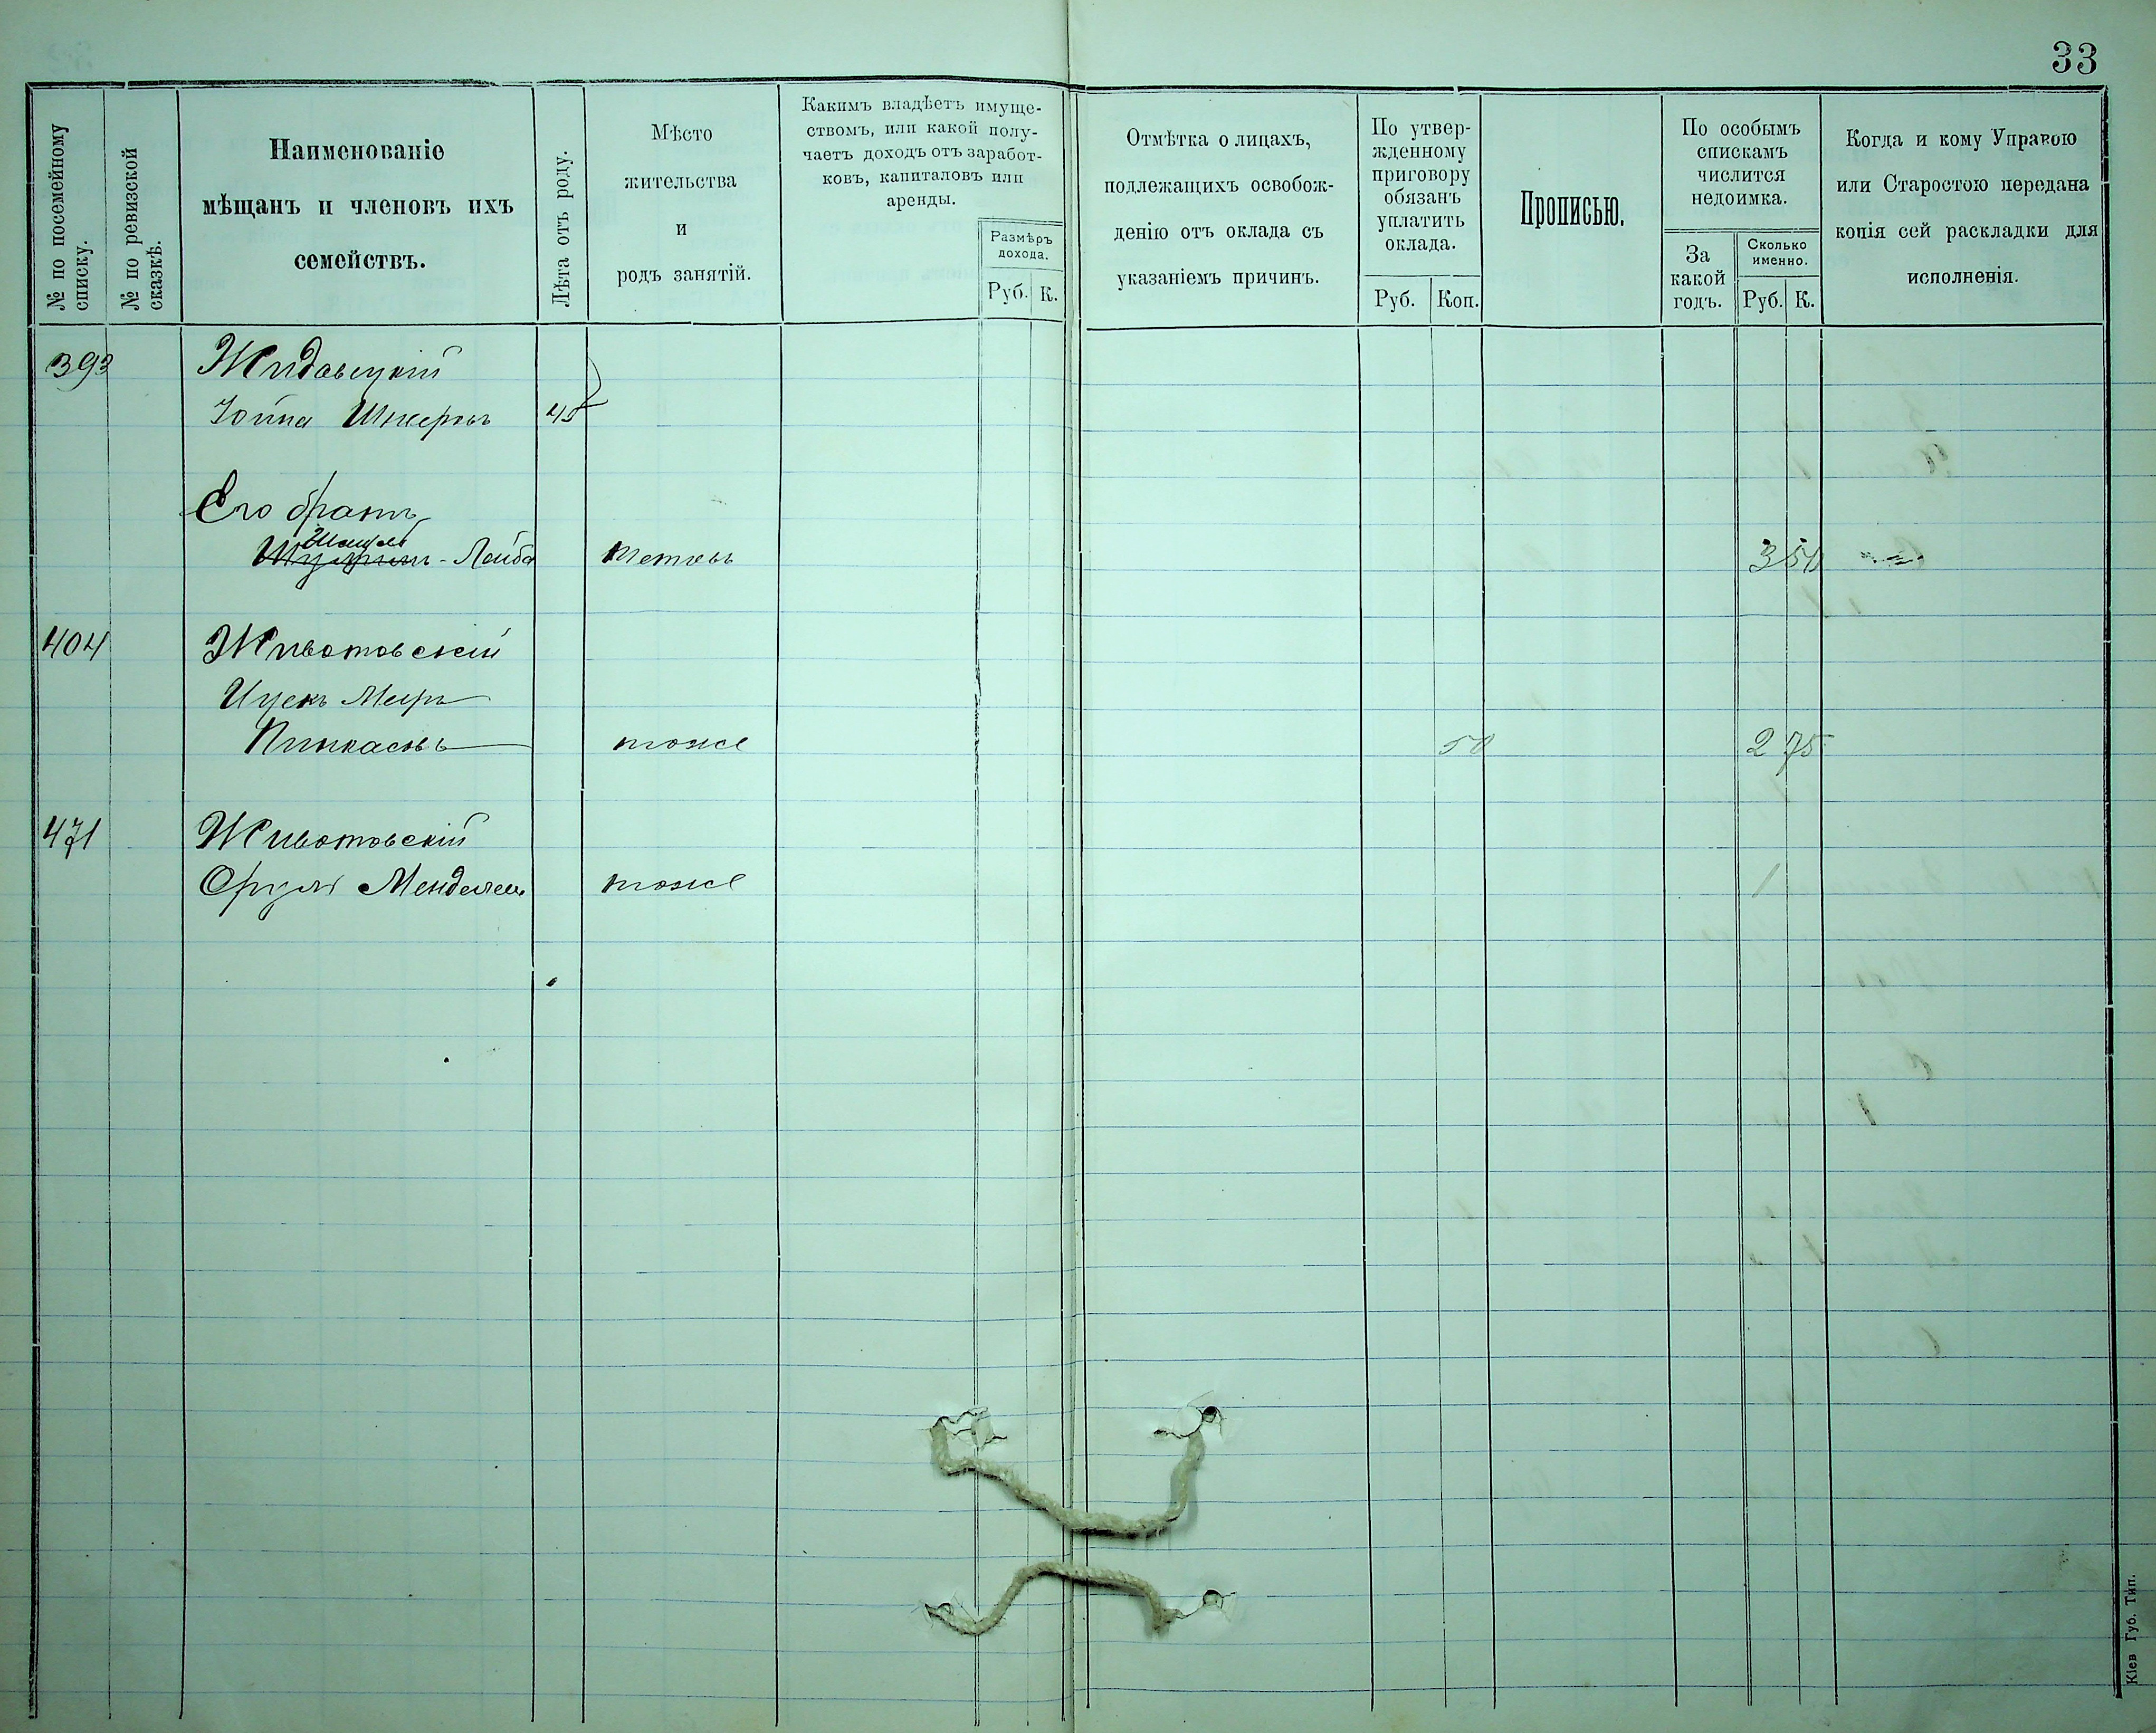 33
№ по посемейному
списку.
№ по ревизской
сказкѣ.
Наименованіе
мѣщанъ и членовъ ихъ
семействъ.
Лѣта отъ роду.
Мѣсто
жительства
и
родъ занятій.
Какимъ владѣетъ имуще-
ствомъ, или какой полу-
чаетъ доходъ отъ заработ-
ковъ, капиталовъ или
аренды.
Размѣръ
дохода.
Руб. К.
Отмѣтка о лицахъ,
подлежащихъ освобож-
денію отъ оклада съ
указаніемъ причинъ.
По утвер-
жденному
приговору
обязанъ
уплатить
оклада.
Руб. Коп.
Прописью.
По особымъ
спискамъ
числится
недоимка.
За
какой
годъ.
Сколько
именно.
Руб. К.
Когда и кому Управою
или Старостою передана
копія сей раскладки для
исполненія.
393 Жидовецкій
Іойна 45
Его братъ
-Лейба 3 50
404 Животовскій
Ицекъ Меиръ
Пинкасовъ тоже 50 2 75
471 Животовскій
Сруль тоже 1
Кіев Губ. Тип.